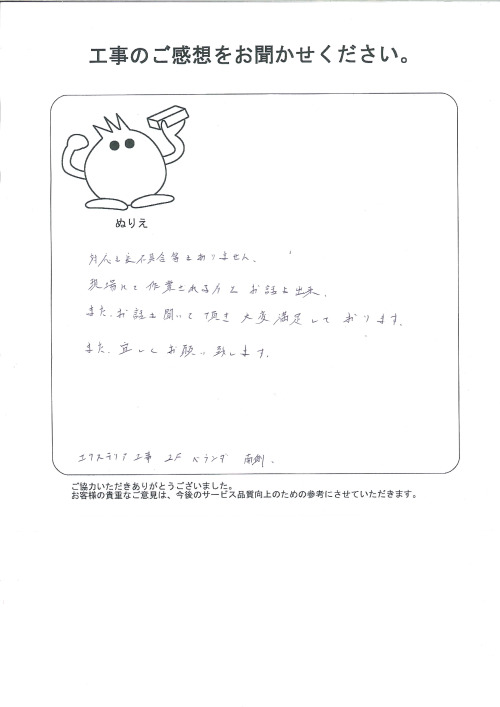 工事のご感想をお聞かせください。
ぬりえ
対応も良く不具合等もありません。
現場にて作業される方ともお話も出来、
また、お話も聞いて頂き大変満足しております。
また、宜しくお願い致します。
エクステリア工事 2F ベランダ
ご協力いただきありがとうございました。
お客様の貴重なご意見は、今後のサービス品質向上のための参考にさせていただきます。